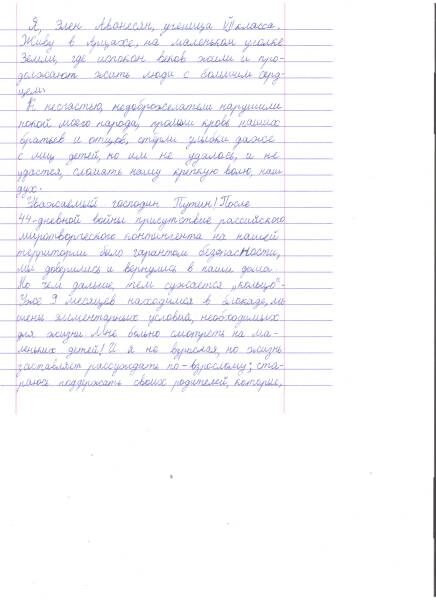 Я, Элен Аванесян, ученица VII класса.
Живу в Арцахе, на маленьком уголке
Земли, где испокон веков жили и про-
должают жить люди с большим серд-
цем.
К несчастью, недоброжелатели нарушили
покой моего народа, пролили кровь наших
братьев и отцов, стёрли улыбки даже
с лиц детей, но им не удалось, и не
удастся, сломать нашу крепкую волю, наш
дух.
Уважаемый господин Путин! После
44-дневной войны присутствие российского
миротворческого контингента на нашей
территории было гарантом безопасности,
мы доверились и вернулись в наши дома.
Но чем дальше, тем сужается „кольцо"-
Уже 9 месяцев находимся в блокаде, ли-
шены элементарных условий, необходимых
для жизни. Мне больно смотреть на ма-
леньких детей! И я не взрослая, но жизнь
заставляет рассуждать по-взрослому; ста-
раюсь поддержать своих родителей, которые,